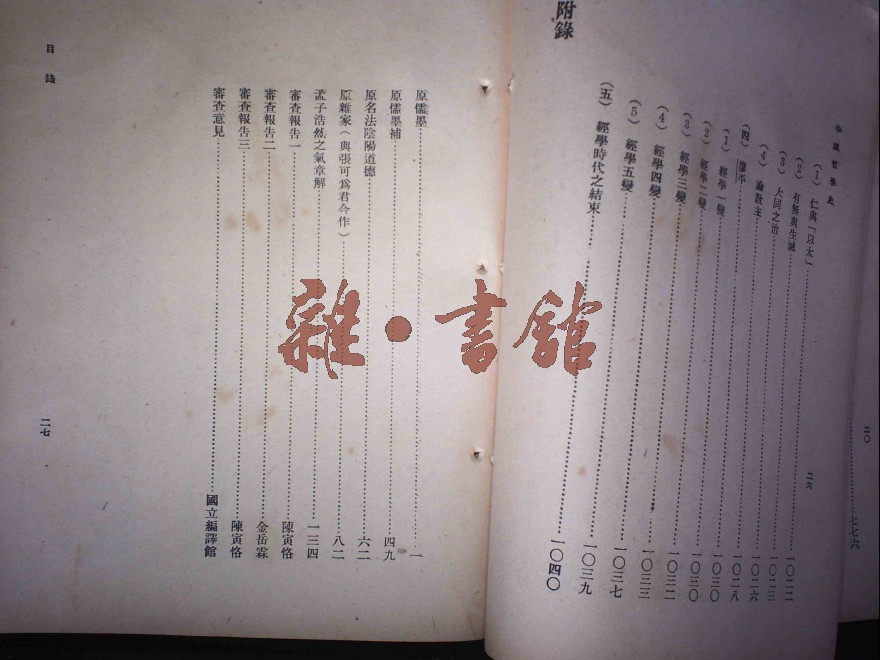 中國哲學史
(1) 仁與「以太」 一〇二二
(2) 有無與生滅 一〇二二
(3) 大同之治 一〇二三
(4) 論教主 一〇二六
(四) 廖平 一〇二八
(1) 經學一變 一〇三〇
(2) 經學二變 一〇三〇
(3) 經學三變 一〇三二
(4) 經學四變 一〇三三
(5) 經學五變 一〇三七
(五) 經學時代之結束 一〇三九
附錄 一〇四〇
二六
原儒墨 一
原儒墨補 四九
原名法陰陽道德 六二
原雜家(與張可爲君合作) 八二
孟子浩然之氣章解 一三四
審查報告一 陳寅恪
審查報告二 金岳霖
審查報告三 陳寅恪
審查意見 國立編譯館
目錄
二七
二〇
七七六
雜·書館